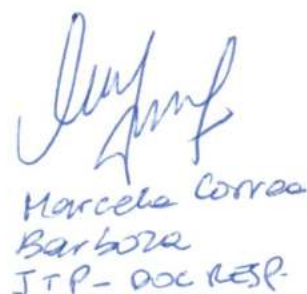 Marcela Correa
Barboza
JTP - DOC RESP.